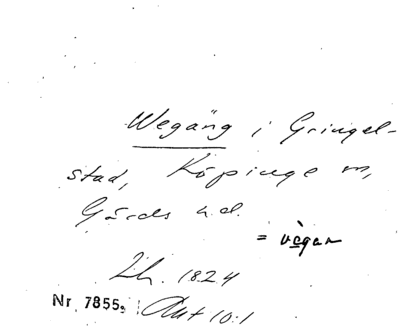 Wegäng i Gringel-
stad, Köpinge sn,
Gärds h.d.
= vègar
Lh. 1824
Nr 7855. Akt 10:1